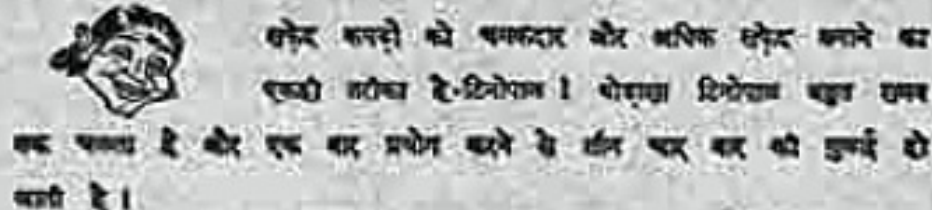 सफ़ेद कपड़ों को चमकदार और अधिक सफ़ेद बनाने का
एकही तरीका है-टिनोपाल । थोड़ासा टिनोपाल बहुत समय
तक चलता है और एक बार प्रयोग करने से तीन चार बार की धुलाई हो
जाती है ।